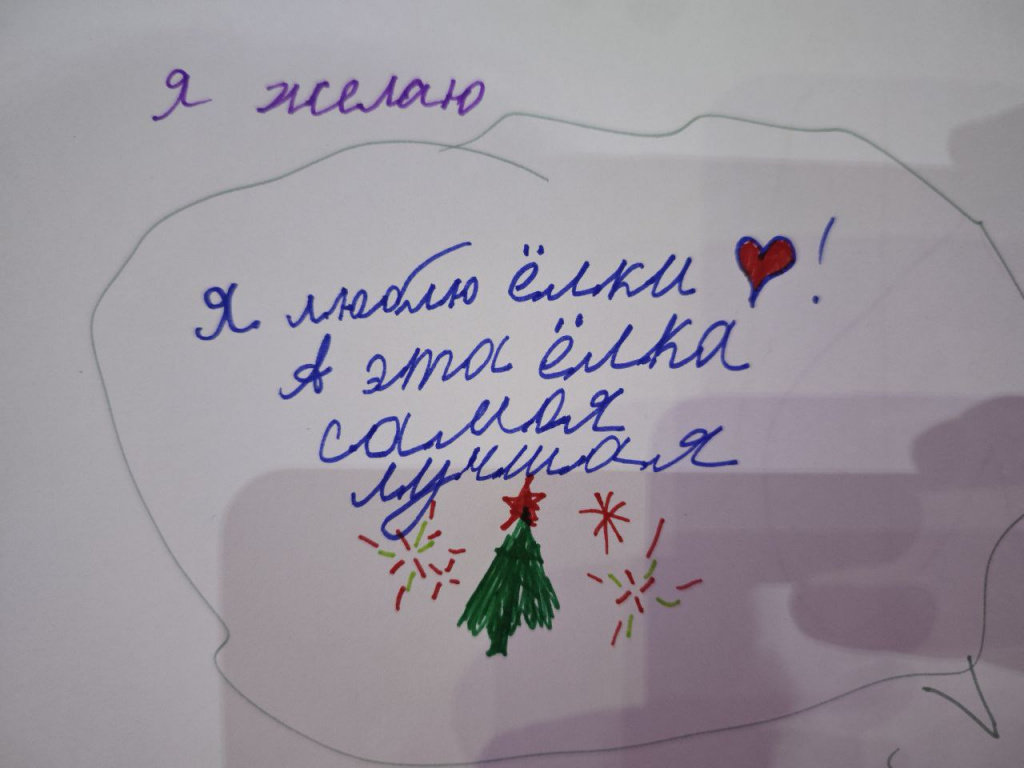 Я желаю
Я люблю ёлки ❤!
А эта ёлка
самая
лучшая